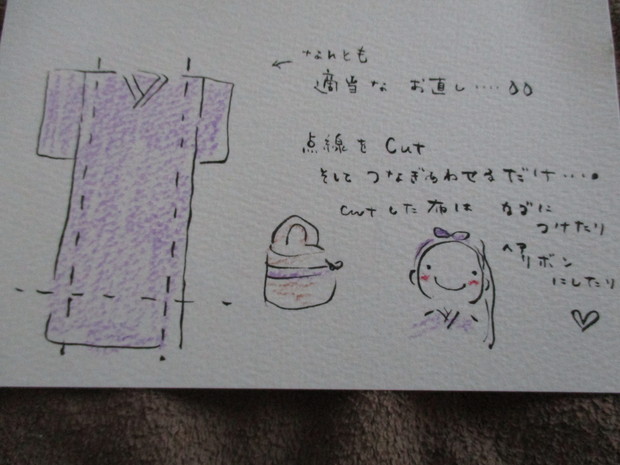 ← なんとも
適当な お直し....
点線を Cut
そして つなぎあわせるだけ....
cutした布は かごに
つけたり
ヘアリボン
にしたり
♡